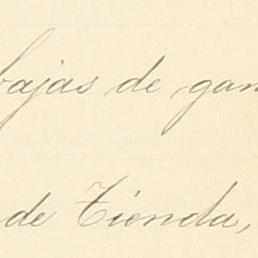 bajas de gan
de Tienda,